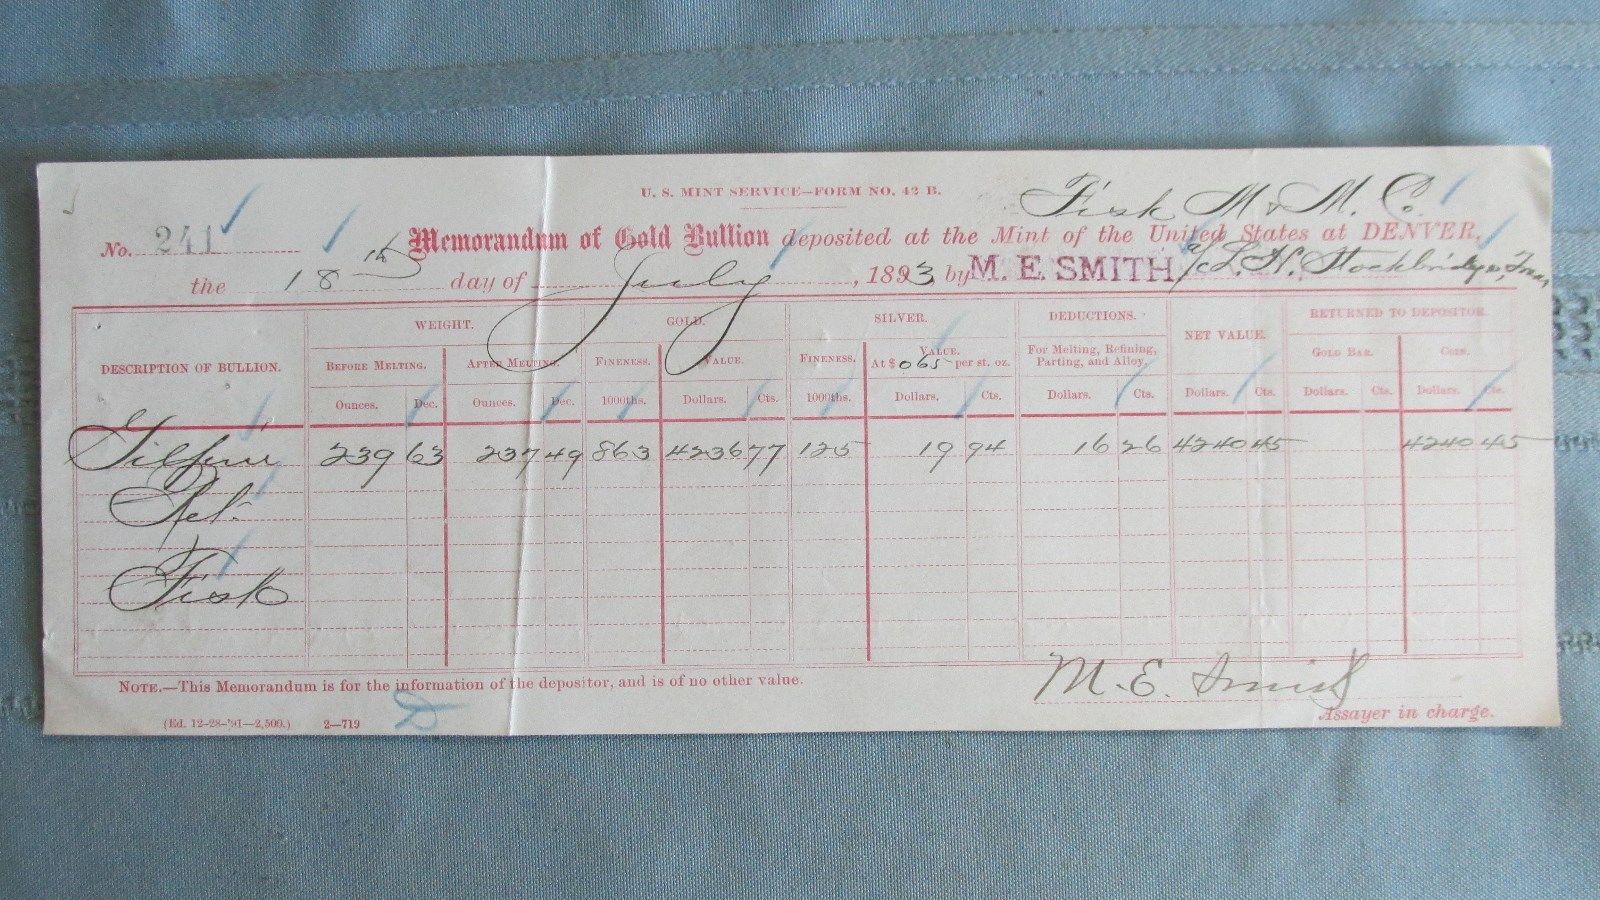 U. S. MINT SERVICE—FORM NO. 42 B.
Fisk M & M. Co.
No. 241 Memorandum of Gold Bullion deposited at the Mint of the United States at DENVER,
the 18th day of July, 1893, by M. E. SMITH a/c L. H. Stockbridge, Treas,
DESCRIPTION OF BULLION. WEIGHT. GOLD. SILVER. DEDUCTIONS. NET VALUE. RETURNED TO DEPOSITOR.
BEFORE MELTING. AFTER MELTING. FINENESS. VALUE. FINENESS. VALUE. At $ 065 per st. oz. For Melting, Refining, Parting, and Alloy. GOLD BAR. COIN.
Ounces. Dec. Ounces. Dec. 1000ths. Dollars. Cts. 1000ths. Dollars. Cts. Dollars. Cts. Dollars. Cts. Dollars. Cts. Dollars. Cts.
239 63 237 49 863 4236 77 125 19 94 16 26 4240 45 4240 45
Ret.
Fisk
NOTE.—This Memorandum is for the information of the depositor, and is of no other value.
M. E. Smith
(Ed. 12-28-'91—2,500.) 2—719
Assayer in charge.